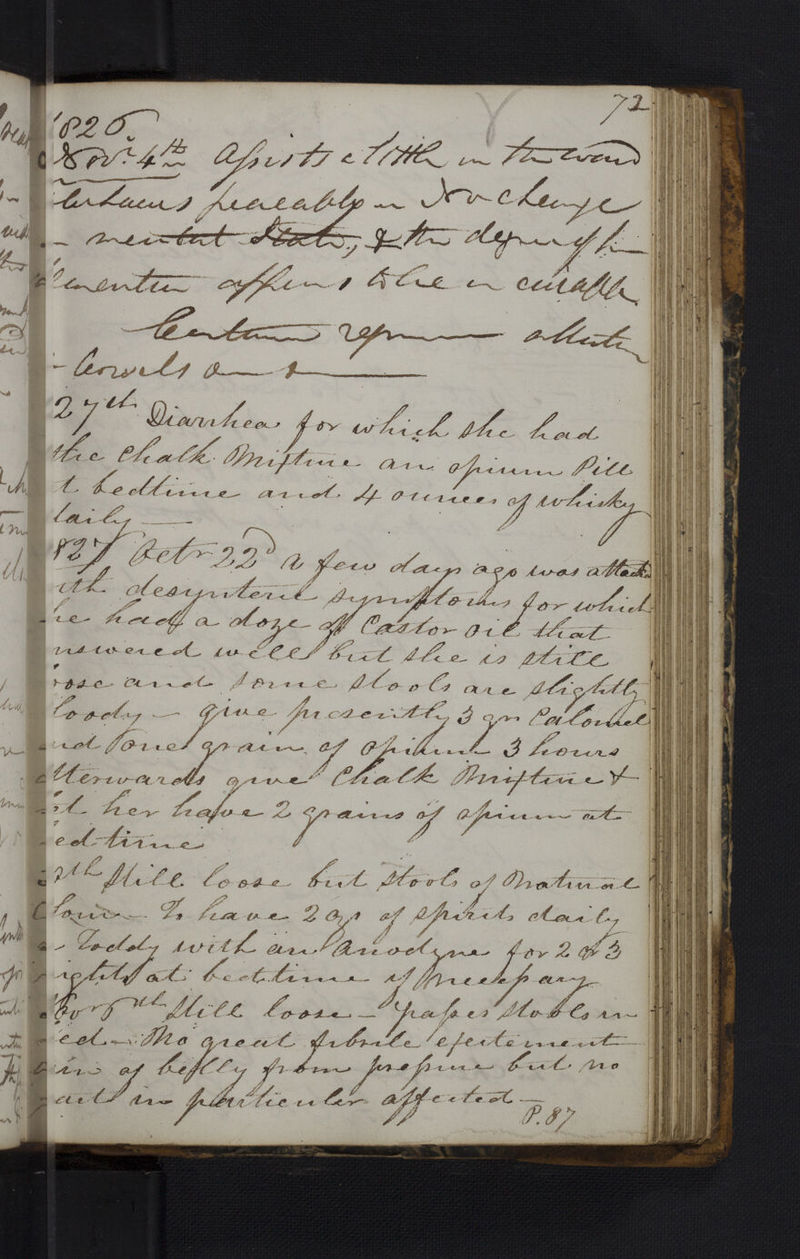 72
1826
Novr. 4th Assists a little in the ward
behaves peaceably no change
- mental State, & the degree of
dementia appears to be incurable

- bowels
27th Diarrhea for which she had
the Chalk Mixture an opium Pill
t bedtime and 4 ounces of whisky
daily —
1827 Octr 22d a few days ago was attack
ith desynteric symptoms for which
he had a doze of Castor oil that
nswered well but she is still
oose and some stools are slightly
loody – give presently 3 grs Calomel
and one grain of opium 3 hours
fterwards give Chalk Mixture &
et her have 2 grains of opium at
edtime
th Still loose but stools of Natural
Colour To have 2 ozs of spirits daily
- Toddy with an anodyne for 2 or 3
nights at bedtime if necessary
Novr 5th Still loose – passes stools in
ed – No great febrile exitement
pain of belly from pressure but no
part in particular affected –
P. 87